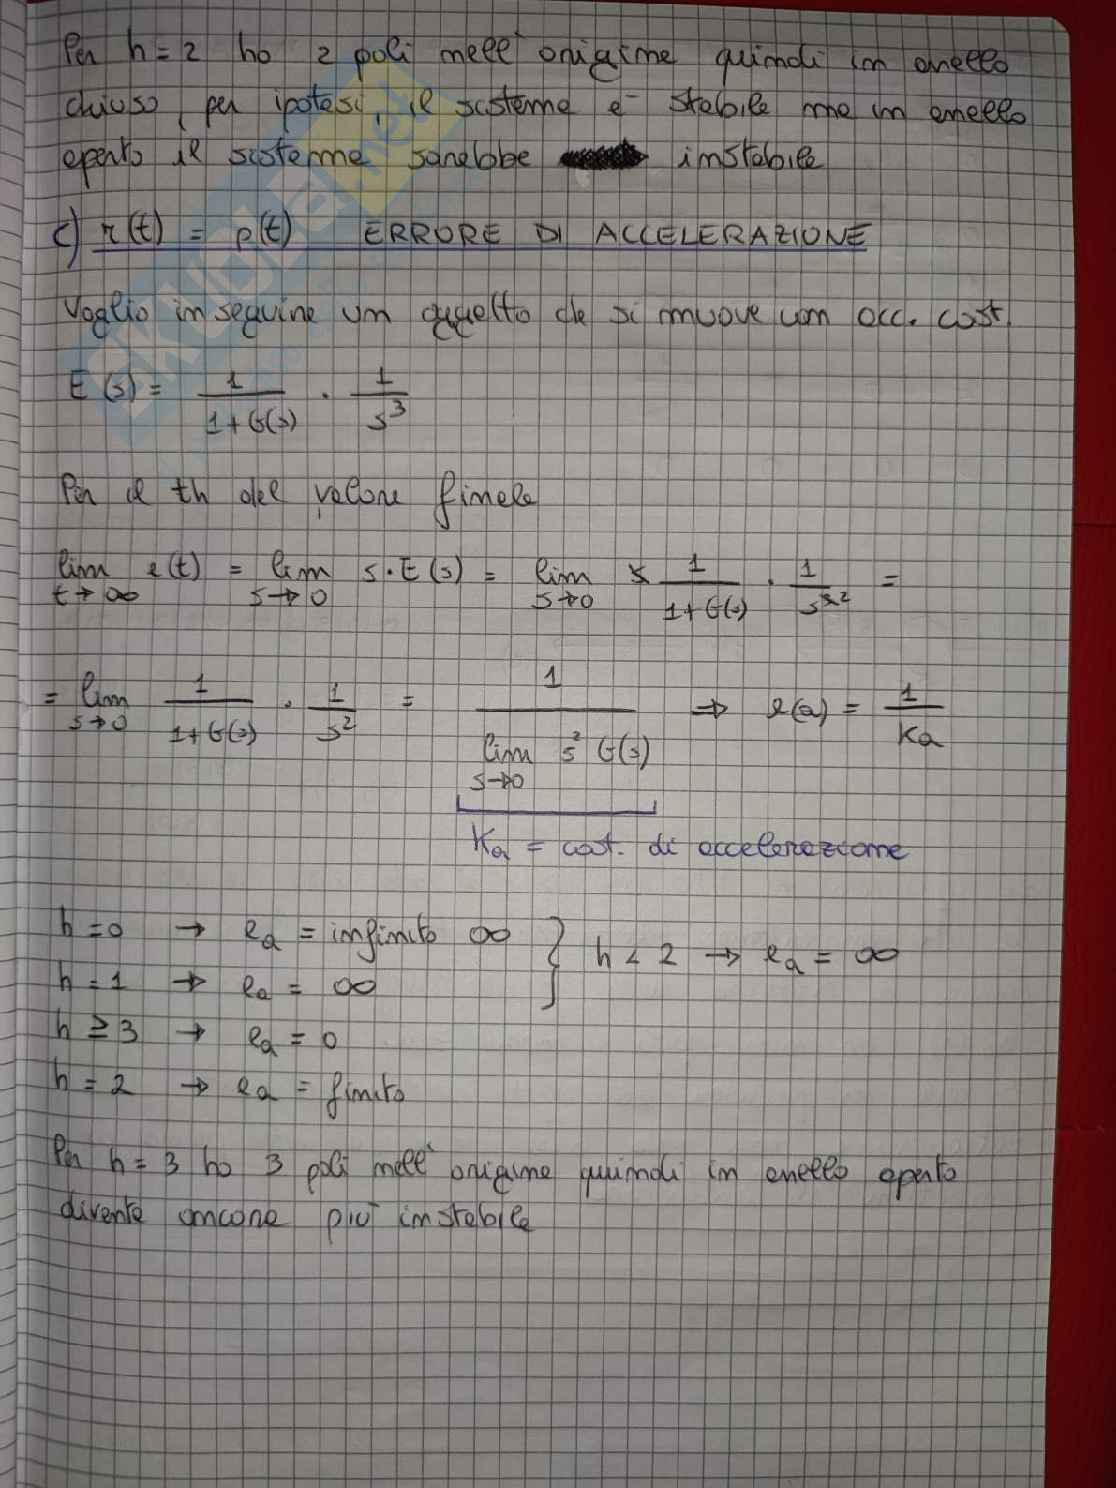 Per h=2 ho 2 poli nell'origine quindi in anello
chiuso, per ipotesi, il sistema è stabile ma in anello
aperto il sistema sarebbe instabile
c) r(t) = p(t) ERRORE DI ACCELERAZIONE
Voglio inseguire un oggetto che si muove con acc. cost.
E(s) = 1/(1+G(s)) · 1/s³
Per il th del valore finale
lim t→∞ e(t) = lim s→0 s·E(s) = lim s→0 s 1/(1+G(s)) · 1/s³² =
= lim s→0 1/(1+G(s)) · 1/s² = 1/(lim s→0 s² G(s)) ⇒ e(a) = 1/Ka
Ka = cost. di accelerazione
h=0 → ea = infinito ∞ } h < 2 → ea = ∞
h = 1 → ea = ∞
h ≥ 3 → ea = 0
h = 2 → ea = finito
Per h=3 ho 3 poli nell'origine quindi in anello aperto
diventa ancora più instabile
SKUOLA.net